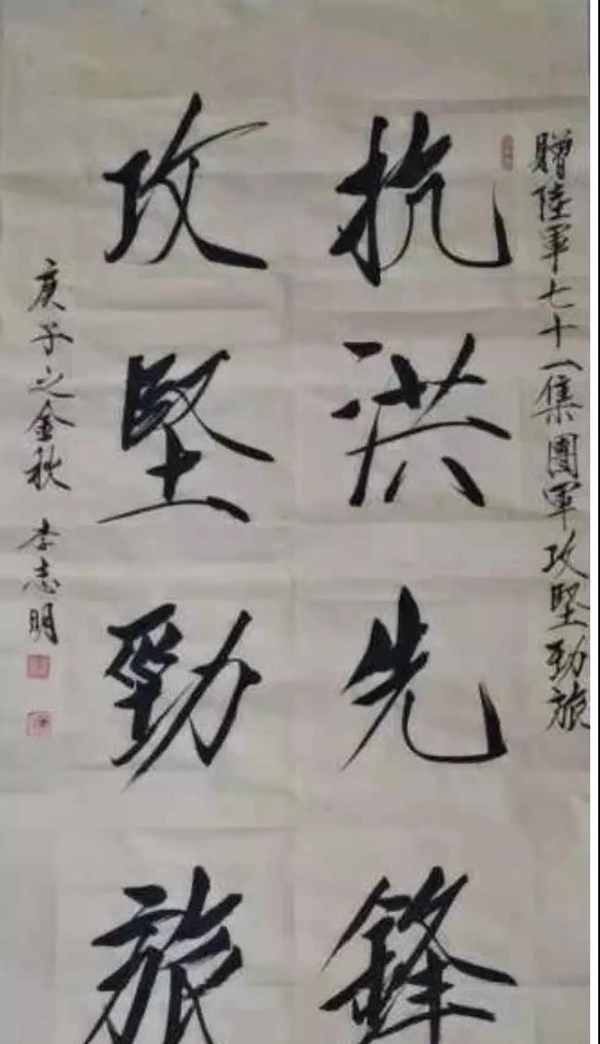 贈陸軍七十一集團軍攻堅勁旅
抗洪先鋒
攻堅勁旅
庚子之金秋 李志明